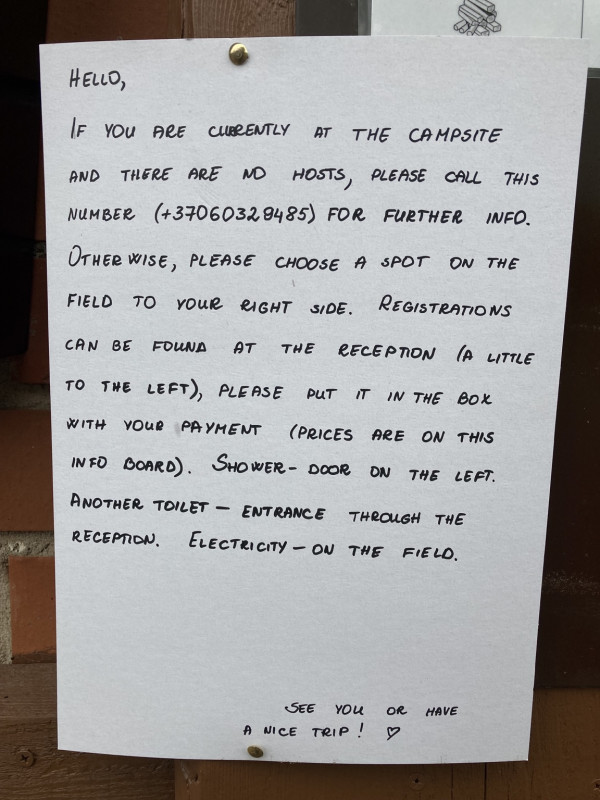 HELLO,
IF YOU ARE CURRENTLY AT THE CAMPSITE
AND THERE ARE NO HOSTS, PLEASE CALL THIS
NUMBER (+37060329485) FOR FURTHER INFO.
OTHERWISE, PLEASE CHOOSE A SPOT ON THE
FIELD TO YOUR RIGHT SIDE. REGISTRATIONS
CAN BE FOUND AT THE RECEPTION (A LITTLE
TO THE LEFT), PLEASE PUT IT IN THE BOX
WITH YOUR PAYMENT (PRICES ARE ON THIS
INFO BOARD). SHOWER- DOOR ON THE LEFT.
ANOTHER TOILET – ENTRANCE THROUGH THE
RECEPTION. ELECTRICITY – ON THE FIELD.
SEE YOU OR HAVE
A NICE TRIP! ♡